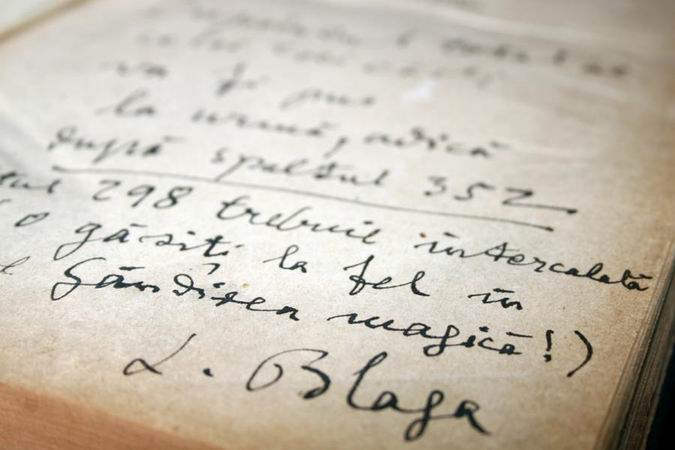 va fi pus
la urmă, adică
după spaltul 352
298 trebuie intercalată
o găsiți la fel în
Gândirea magică!)
L. Blaga